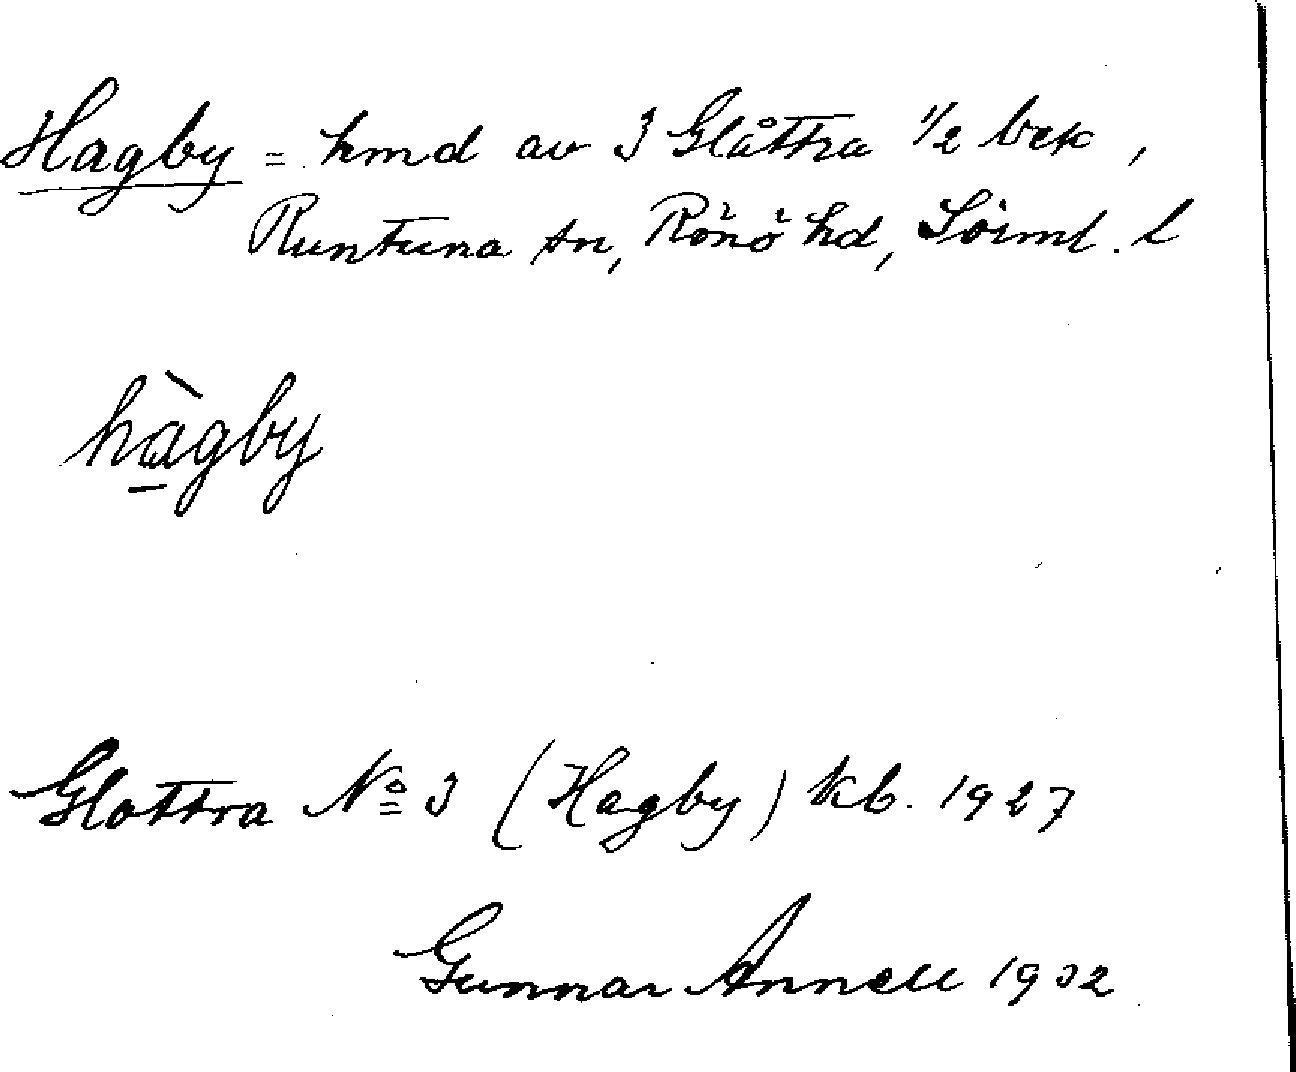 Hagby = hmd av 3 Glåttra 1/2 bek,
Runtuna sn, Rönö hd, Sörml. l
hàgby
Glottra No 3 (Hagby) kb. 1927
Gunnar Annell 1932